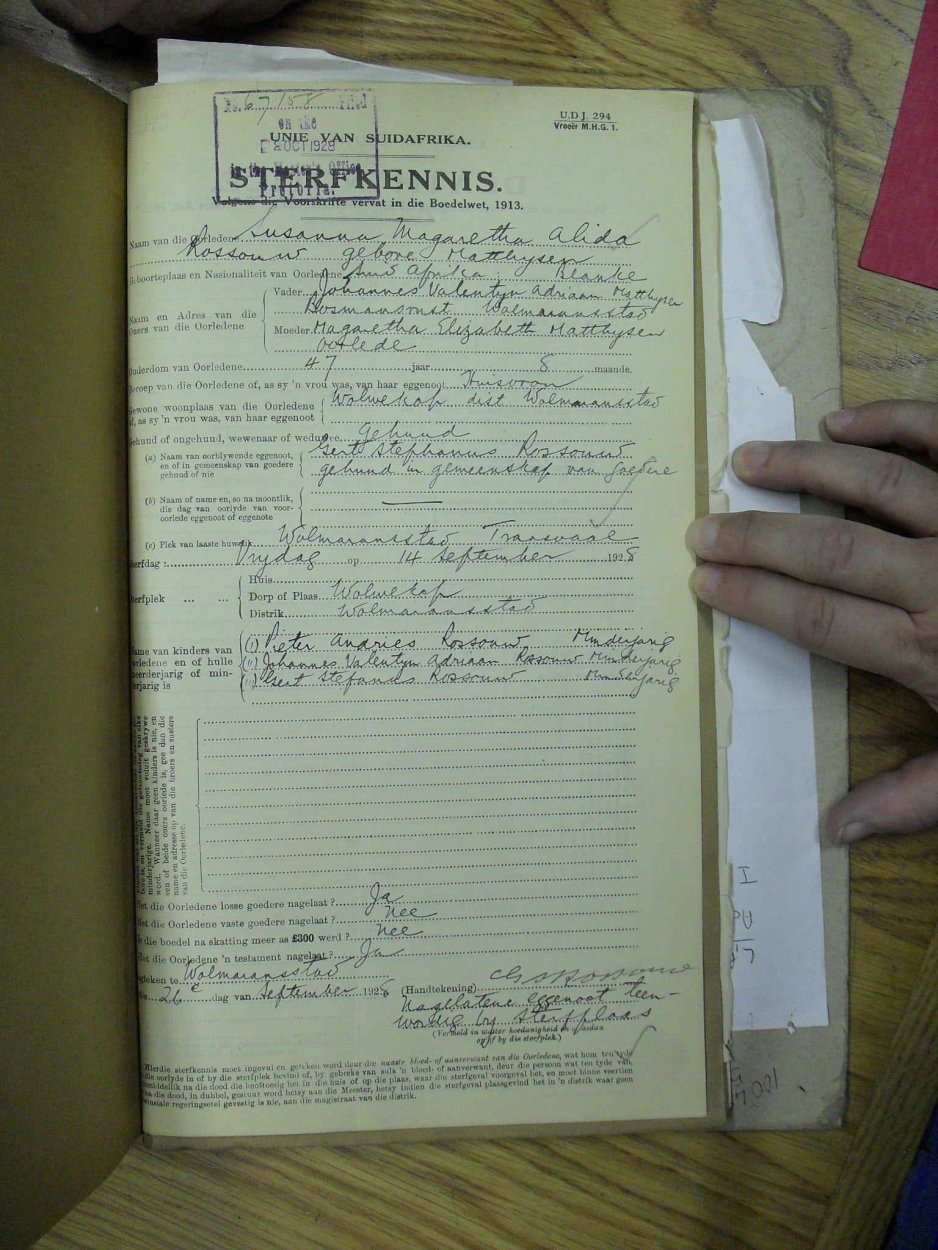 No. 67158 Filed
on the
2 OCT 1928
in the Master's Office
Pretoria.
U.D.J. 294
Vroeër M.H.G. 1.
UNIE VAN SUIDAFRIKA.
STERFKENNIS.
Volgens die Voorskrifte vervat in die Boedelwet, 1913.
Naam van die Oorledene Susanna Magaretha Alida
Rossouw gebore Matthysen
Geboorteplaas en Nasionaliteit van Oorledene Suid Afrika : Blanke
Naam en Adres van die Ouers van die Oorledene
Vader Johannes Valentyn Adriaan Matthysen
Bosmansrust Wolmaransstad
Moeder Magaretha Elizabeth Matthysen
oorlede
Ouderdom van Oorledene 47 jaar 8 maande.
Beroep van die Oorledene of, as sy 'n vrou was, van haar eggenoot Huisvrou
Gewone woonplaas van die Oorledene of, as sy 'n vrou was, van haar eggenoot
Wolwekop dist Wolmaransstad
Gehuud of ongehuud, wewenaar of weduwee gehuud
(a) Naam van oorblywende eggenoot, en of in gemeenskap van goedere gehuud of nie
Gert Stephanus Rossouw
gehuud in gemeenskap van goedere
(b) Naam of name en, so na moontlik, die dag van oorlyde van vooroorlede eggenoot of eggenote
(c) Plek van laaste huwelik Wolmaransstad Transvaal
Sterfdag : Vrydag op 14 September 1928
Sterfplek ... ...
Huis
Dorp of Plaas Wolwekop
Distrik Wolmaransstad
Name van kinders van Oorledene en of hulle meerderjarig of minderjarig is
(i) Pieter Andries Rossouw Minderjarig
(ii) Johannes Valentyn Adriaan Rossouw Minderjarig
Gert Stefanus Rossouw Minderjarig
minderjarige. Name moet voluit geskrywe
word. Wanneer daar geen kinders is nie, en
een of beide ouers oorlede is, gee dan die
name en adresse op van die broers en susters
van die Oorledene.
Het die Oorledene losse goedere nagelaat ? Ja
Het die Oorledene vaste goedere nagelaat ? nee
Is die boedel na skatting meer as £300 werd ? nee
Het die Oorledene 'n testament nagelaat ? Ja
Wolmaransstad
26e dag van September 1928
(Handtekening) G S Rossouw
Nagelatene eggenoot teen-
wordig by sterfplaas
(Vermeld in watter hoedanigheid en
of by die sterfplek.)
Hierdie sterfkennis moet ingevul en geteken word deur die naaste bloed- of aanverwant van die Oorledene, wat hom ten tyde
die oorlyde in of by die sterfplek bevind of, by gebreke van sulk 'n bloed- of aanverwant, deur die persoon wat ten tyde van,
onmiddellik na die dood die hooftoesig het in die huis of op die plaas, waar die sterfgeval voorgeval het, en moet binne veertien
na die dood, in dubbel, gestuur word hetsy aan die Meester, hetsy indien die sterfgeval plaasgevind het in 'n distrik waar geen
regeringsetel gevestig is nie, aan die magistraat van die distrik.